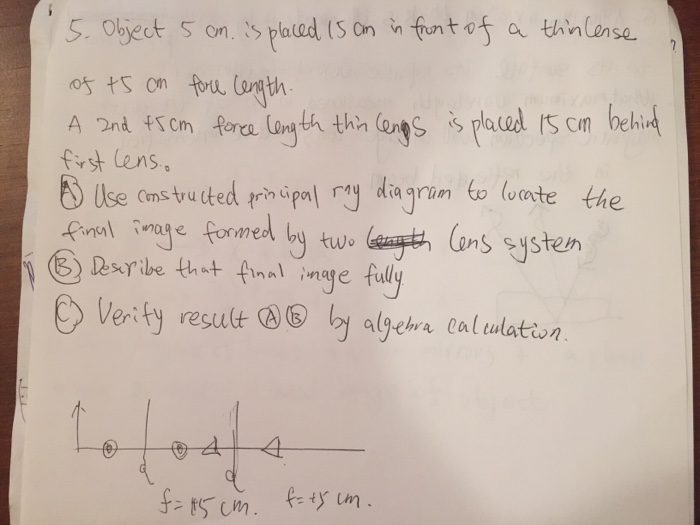 5. Object 5 cm. is placed 15 cm in front of a thin lense
of +5 cm force length.
A 2nd +5cm force length thin lengs is placed 15 cm behind
first lens.
Ⓐ Use constructed principal ray diagram to locate the
final image formed by two lens system
Ⓑ Describe that final image fully
Ⓒ Verify result Ⓐ Ⓑ by algebra calculation.
f=+5 cm. f=+5 cm.